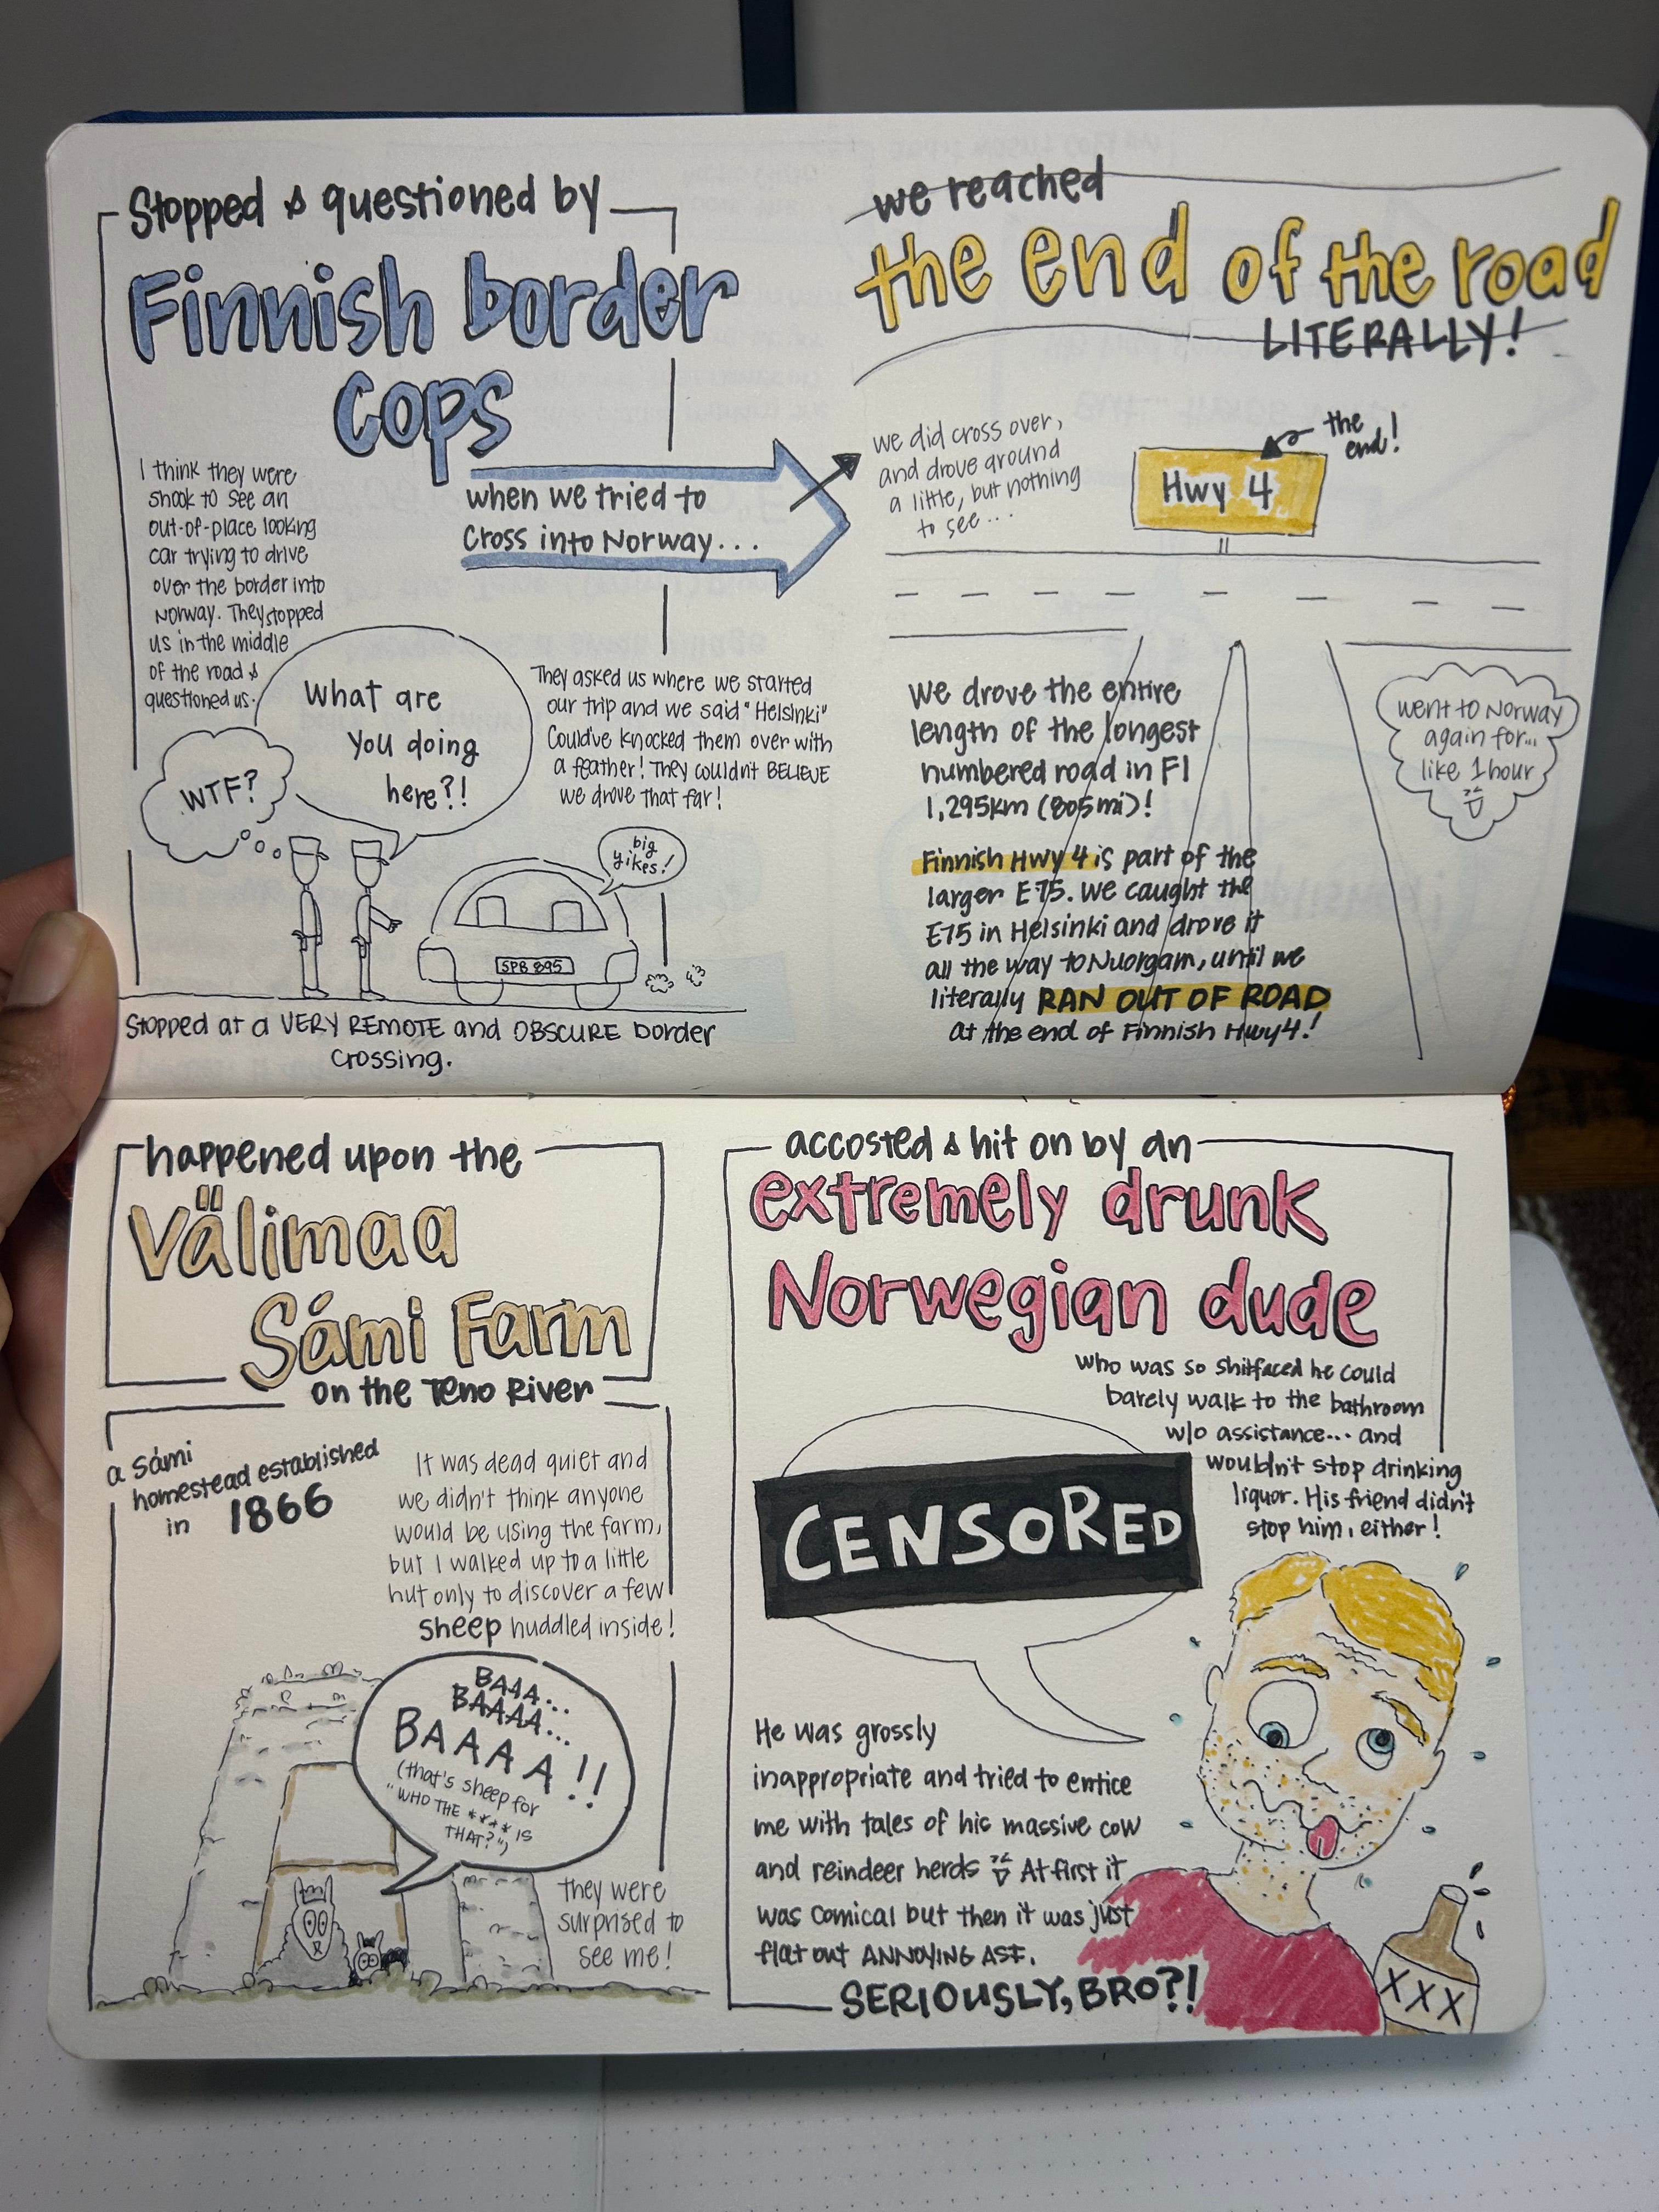 Stopped & questioned by
Finnish border
cops
when we tried to
cross into Norway...
I think they were
shook to see an
out-of-place looking
car trying to drive
over the border into
Norway. They stopped
us in the middle
of the road &
questioned us.
WTF?
What are
you doing
here?!
They asked us where we started
our trip and we said "Helsinki"
Could've knocked them over with
a feather! They couldn't BELIEVE
we drove that far!
big
yikes!
SPB 895
Stopped at a VERY REMOTE and OBSCURE border
crossing.
we reached
the end of the road
LITERALLY!
we did cross over,
and drove around
a little, but nothing
to see...
the
end!
Hwy 4
We drove the entire
length of the longest
numbered road in FI
1,295km (805mi)!
Finnish Hwy 4 is part of the
larger E75. We caught the
E75 in Helsinki and drove it
all the way to Nuorgam, until we
literally RAN OUT OF ROAD
at the end of Finnish Hwy 4!
went to Norway
again for...
like 1 hour
happened upon the
Välimaa
Sámi Farm
on the Teno River
a Sámi
homestead established
in 1866
It was dead quiet and
we didn't think anyone
would be using the farm,
but I walked up to a little
hut only to discover a few
sheep huddled inside!
BAAA...
BAAAA...
BAAAA!!
(that's sheep for
"WHO THE **** IS
THAT?")
they were
surprised to
see me!
accosted & hit on by an
extremely drunk
Norwegian dude
who was so shitfaced he could
barely walk to the bathroom
w/o assistance... and
wouldn't stop drinking
liquor. His friend didn't
stop him, either!
CENSORED
He was grossly
inappropriate and tried to entice
me with tales of his massive cow
and reindeer herds At first it
was comical but then it was just
flat out ANNOYING ASF.
SERIOUSLY, BRO?!
XXX